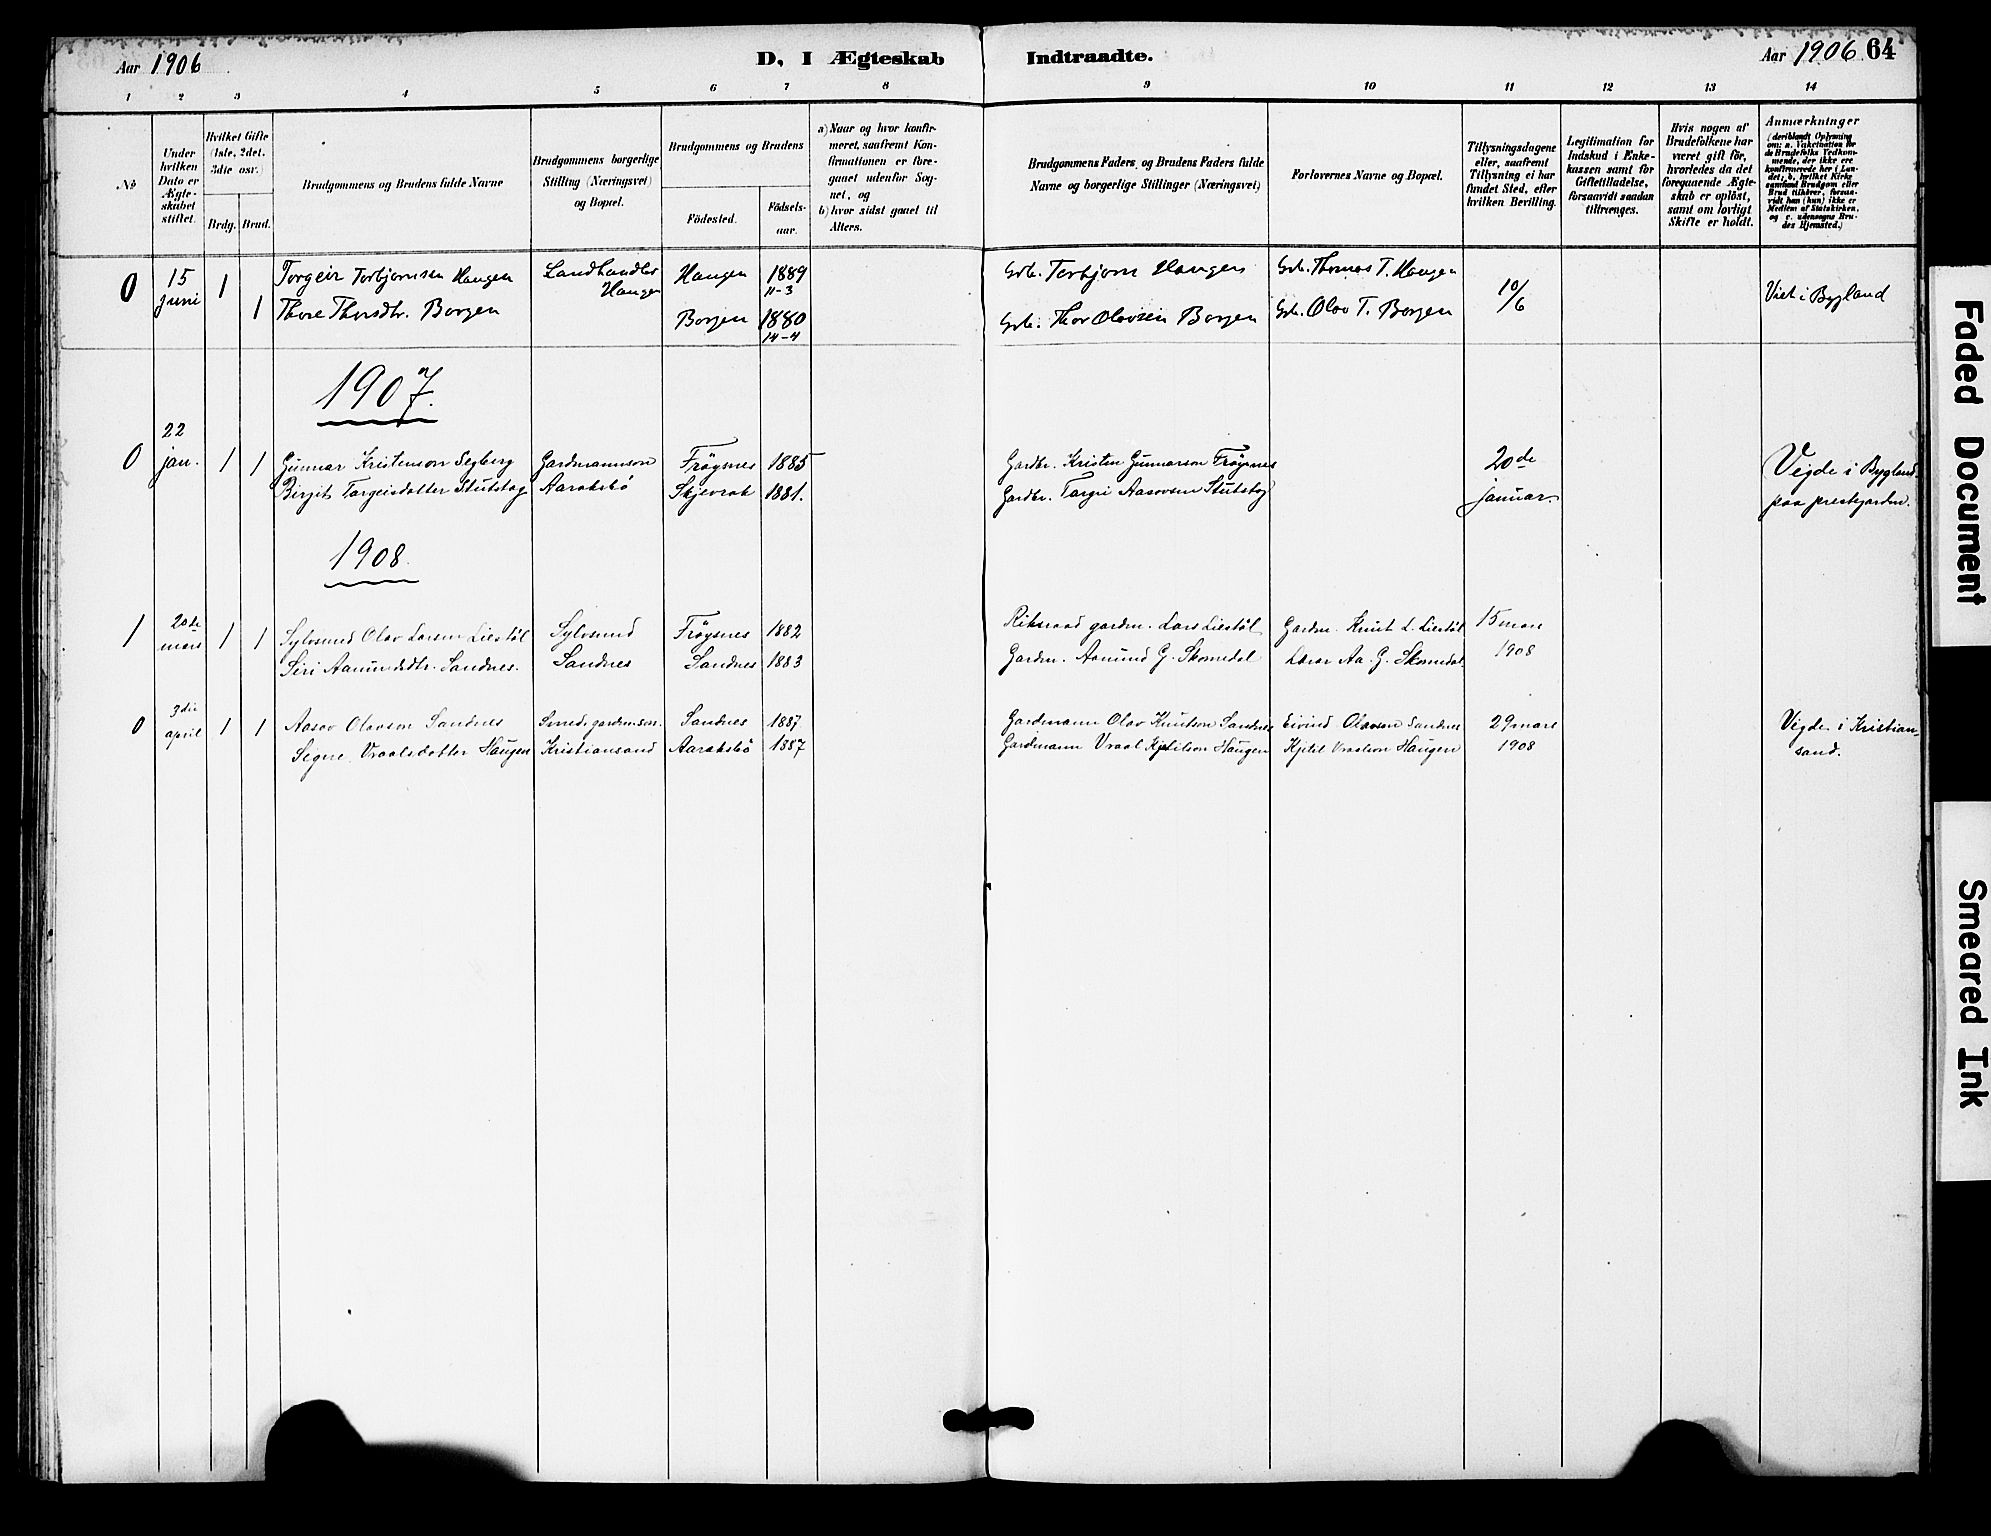 Aar 1906
D, I Ægteskab Indtraadte.
Aar 1906 64
1 2 3 4 5 6 7 8 9 10 11 12 13 14
No
Under hvilken Dato er Ægteskabet stiftet.
Hvilket Gifte (1ste, 2det, 3die osv.)
Brdg. Brud.
Brudgommens og Brudens fulde Navne
Brudgommens borgerlige Stilling (Næringsvei) og Bopæl.
Brudgommens og Brudens
Fødested. Fødselsaar.
a) Naar og hvor konfirmeret, saafremt Konfirmationen er foregaaet udenfor Sognet, og
b) hvor sidst gaaet til Alters.
Brudgommens Faders, og Brudens Faders fulde Navne og borgerlige Stillinger (Næringsvei)
Forlovernes Navne og Bopæl.
Tillysningsdagene eller, saafremt Tillysning ei har fundet Sted, efter hvilken Bevilling.
Legitimation for Indskud i Enkekassen samt for Giftetilladelse, forsaavidt saadan tiltrænges.
Hvis nogen af Brudefolkene har været gift før, hvorledes da det foregaaende Ægteskab er opløst, samt om lovligt Skifte er holdt.
Anmærkninger (deriblandt Oplysning om: a. Vakcination for de Brudefolks Vedkommende, der ikke ere konfirmerede her i Landet; b. hvilket Kirkesamfund Brudgom eller Brud tilhører, forsaavidt han (hun) ikke er Medlem af Statskirken, og c. udensogns Brudes Hjemsted.)
0 15 juni 1 Torgeir Torbjørnsen Haugen Landhandler Haugen Haugen 1889 11-3 Grb. Torbjørn Haugen Grb. Thomas T. Haugen 10/6 Viet i Bygland
1 Thore Thorsdtr. Borgen Borgen 1880 14-4 Grb. Thor Olavsen Borgen Grb. Olav T. Borgen
1907.
0 22 jan. 1 1 Gunnar Kristenson Segberg Gardmannson Frøysnes 1885 Gardbr. Kristen Gunnarson Frøysnes 20de januar. Vigde i Bygland
Birgit Targeisdotter Stutstog Aaraksbø Skjevrak 1881. Gardbr. Targei Aasovsen Stutstog paa prestgarden.
1908.
1 20de mars 1 1 Sylvsmed Olav Larsen Liestøl Sylvsmed Frøysnes 1882 Riksraad gardm. Lars Liestøl Gardm. Knut L. Liestøl 15 mars
Siri Aamundsdtr. Sandnes. Sandnes Sandnes 1883 Gardm. Aamund G. Skomedal Lærar Aa. G. Skomedal 1908
0 3die april 1 1 Aasov Olavson Sandnes Smed, gardm.son. Sandnes 1887 Gardmann Olav Knutson Sandnes Eivind Olavson Sandnes 29 mars Vigde i Kristian-
Signe Vraalsdotter Haugen Kristiansand Aaraksbø 1887 Gardmann Vraal Kjetilson Haugen Kjetil Vraalson Haugen 1908 sand.
Faded Document
Smeared Ink